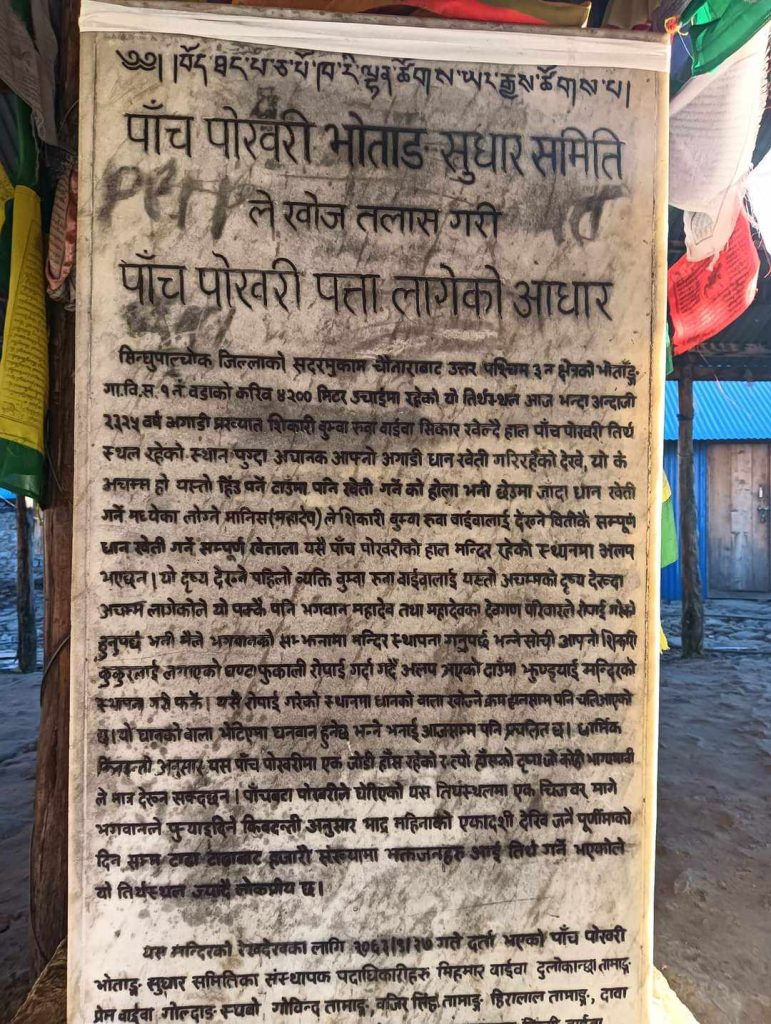 ༄༅། །བོད་ཐང་པ་ཅ་པོ་ཁ་རི་ལྷན་ཚོགས་ཡར་རྒྱས་ཚོགས་པ།
पाँच पोखरी भोताङ सुधार समिति
ले खोज तलास गरी
पाँच पोखरी पत्ता लागेको आधार
सिन्धुपाल्चोक जिल्लाको सदरमुकाम चौताराबाट उत्तर पश्चिम ३ नं क्षेत्रको भोताङ्ग
गा.वि.स. १ नं. वडाको करिव ४२०० मिटर उचाईमा रहेको यो तिर्थस्थल आज भन्दा अन्दाजी
२३२५ वर्ष अगाडी प्रख्यात शिकारी वुम्वा रुवा वाईवा सिकार खेल्दै हाल पाँच पोखरी तिर्थ
स्थल रहेको स्थान पुग्दा अचानक आफ्नो अगाडी धान खेती गरिरहेको देखे, यो के
अचम्म हो यस्तो हिंउ पर्ने ठाउँमा पनि खेती गर्ने को होला भनी छेउमा जाँदा धान खेती
गर्ने मध्येका लोग्ने मानिस(महादेव) ले शिकारी वुम्वा रुवा वाईवालाई देख्ने वितीकै सम्पूर्ण
धान खेती गर्ने सम्पूर्ण खेताला यसै पाँच पोखरीको हाल मन्दिर रहेको स्थानमा अलप
भएछन् । यो दृष्य देख्ने पहिलो व्यक्ति वुम्वा रुवा वाईवालाई यस्तो अचम्मको दृष्य देख्दा
अचम्म लागेकोले यो पक्कै पनि भगवान महादेव तथा महादेवका देवगण परिवारले रोपाई गरेको
हुनुपर्छ भनी मैले भगवानको सम्झनामा मन्दिर स्थापना गर्नुपर्छ भन्ने सोची आफ्नो शिकारी
कुकुरलाई लगाएको घण्टा फुकाली रोपाई गर्दा गर्दै अलप भएको ठाउँमा झुण्ड्याई मन्दिरको
स्थापना गरी फर्के । यसै रोपाई गरेको स्थानमा धानको वाला खोज्ने क्रम हालसम्म पनि चलिआएको
छ । यो धानको वाला भेटिएमा धनवान हुनेछ भन्ने भनाई आजसम्म पनि प्रचलित छ । धार्मिक
किंवदन्ती अनुसार यस पाँच पोखरीमा एक जोडी हाँस रहेको र त्यो हाँसको दृष्य जो कोही भाग्यमानी
ले मात्र देख्न सक्दछन् । पाँचवटा पोखरीले घेरिएको यस तिर्थस्थलमा एक चिज वर मागे
भगवानले पुर्‍याइदिने किंवदन्ती अनुसार भाद्र महिनाको एकादशी देखि जनै पूर्णीमाको
दिन सम्म टाढा टाढाबाट हजारौं संख्यामा भक्तजनहरु आई तिर्थ गर्ने भएकोले
यो तिर्थस्थल ज्यादै लोकप्रीय छ ।
यस मन्दिरको रेखदेखका लागि २०६३/९/२७ गते दर्ता भएको पाँच पोखरी
भोताङ्ग सुधार समितिका संस्थापक पदाधिकारीहरु मिहमार वाईवा दुलोकान्छा तामाङ्ग
प्रेम वाईवा गोल्दाङ स्यबो, गोविन्द तामाङ्ग, वजिर सिंह तामाङ्ग हिरालाल तामाङ्ग, दावा